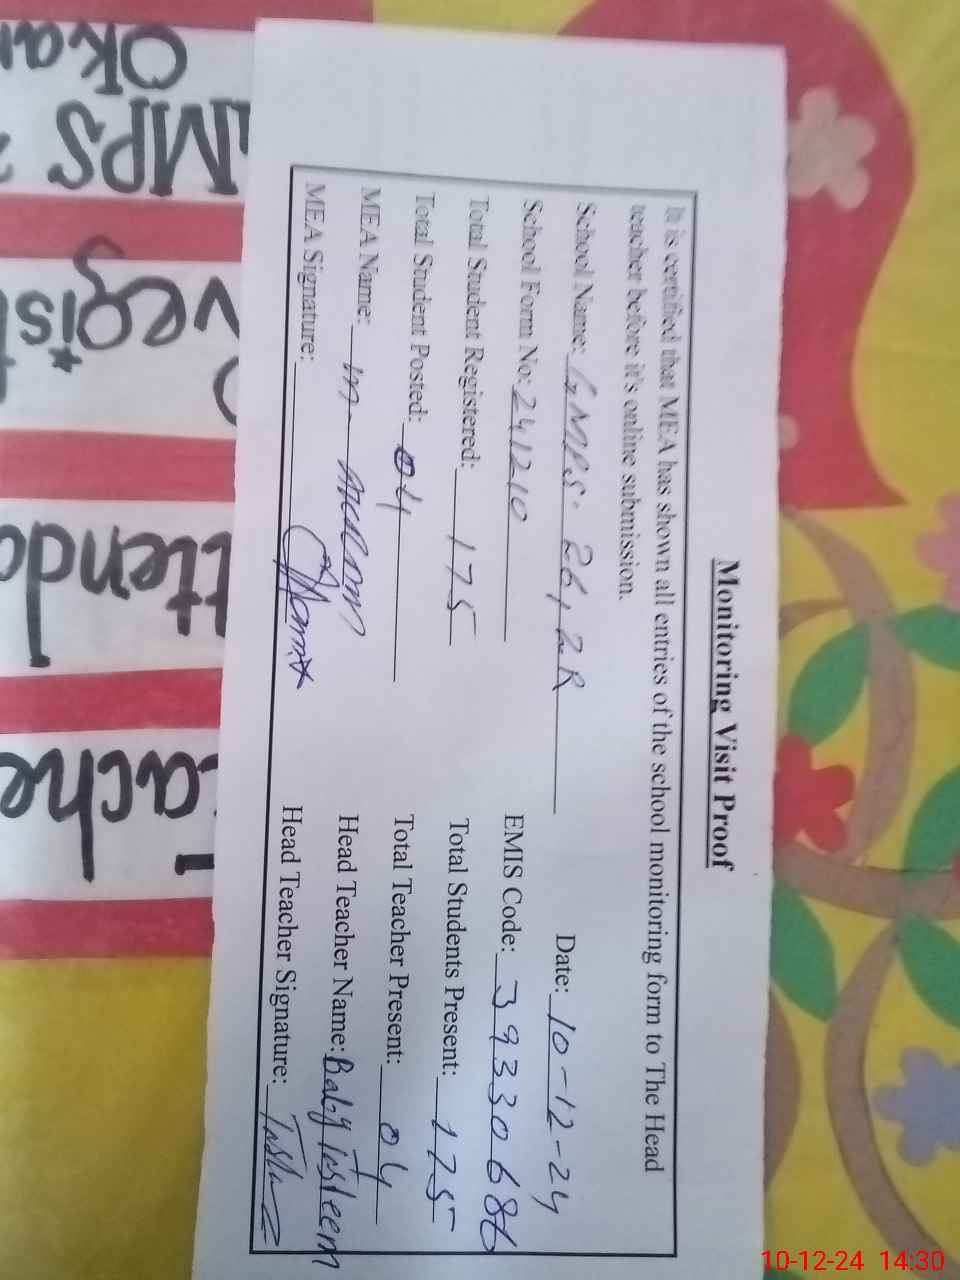 Monitoring Visit Proof
It is certified that MEA has shown all entries of the school monitoring form to The Head
teacher before it's online submission.
School Name: GMPS. 26/2R Date: 10-12-24
School Form No: 241210 EMIS Code: 39330686
Total Student Registered: 175 Total Students Present: 175
Total Student Posted: 04 Total Teacher Present: 04
MEA Name: M Head Teacher Name: Baby Tasleem
MEA Signature: Head Teacher Signature:
MPS
10-12-24 14:30